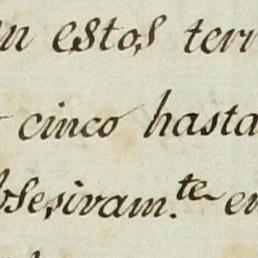 n estos terr
cinco hasta
bsesivam.te en